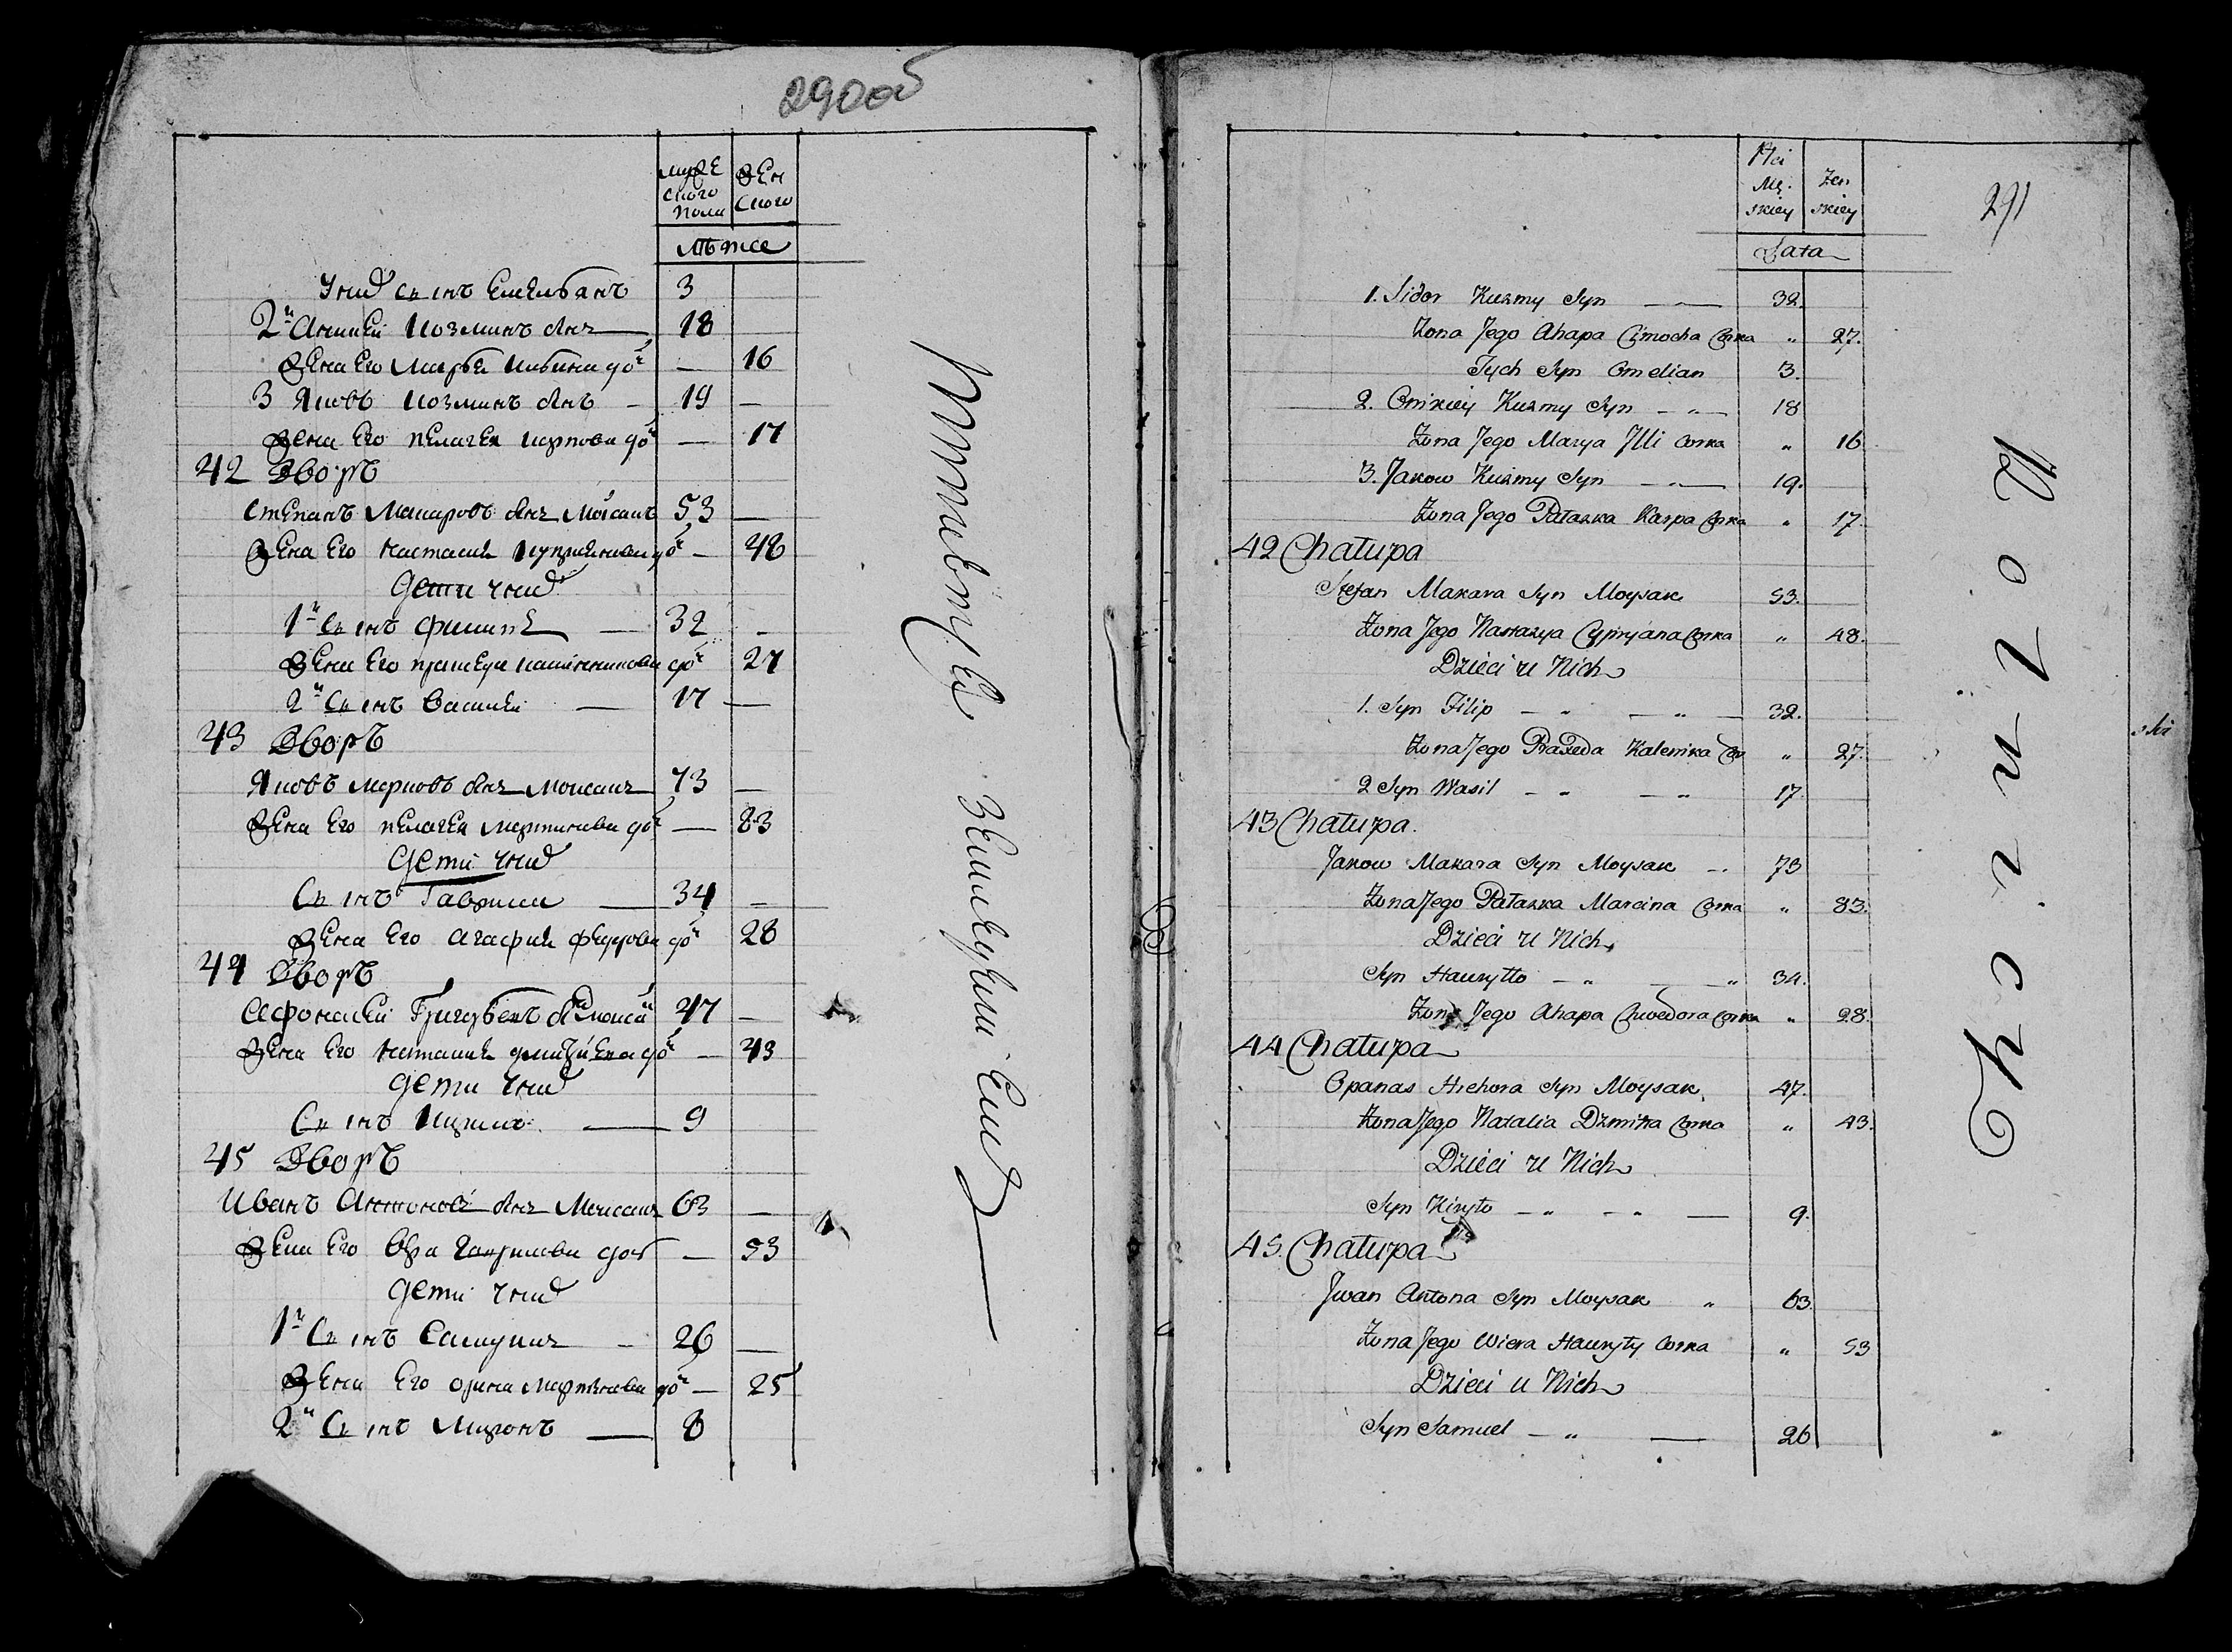 290об
муже
ского
пола
жен
ского
лѣта
У нид сынъ Емельѣанъ 3
2й Аникей Козминъ снъ 18
жена его Марья Ильина доч — 16
3 Яковъ Козминъ снъ — 19 —
жена его пелагея карпова доч — 17
42 Дворъ
Степанъ Макаровъ снъ Мойсакъ 53 —
жена его настасия Куприянова доч — 48
дети у нид
1й сынъ филипъ — 32 —
жена его прасседа калинникова доч 27
2й сынъ василей — 17 —
43 Дворъ
Яковъ марковъ снъ мойсакъ 73 —
жена его пелагея мартинова доч — 83
дети у нид
сынъ Гаврила — 34 —
жена его агафия федорова доч 28
44 Дворъ
Афонасей Григорьевъ снъ мойса 47 —
жена его наталия дмитриева доч — 43
дети у нид
сынъ Кирила — 9
45 Дворъ
Иванъ Антоновъ снъ Мойсакъ 63 —
жена его вѣра гаврилова доч — 53
дети у нид
1й сынъ Самуилъ — 26 —
жена его орина мартинова доч — 25
2й сынъ Миронъ — 8
291
Płci
Mę.
skiey
Żen
skiey
Lata
1. Sidor Kuzmy Syn — 32.
Żona Jego Ahapa Cimocha Corka „ 27.
Tych Syn Omelian 3.
2. Onikiey Kuzmy Syn — „ — 18
Żona Jego Marya Jlli Corka „ 16.
3. Jakow Kuzmy Syn — „ — 19.
Żona Jego Pałazka Karpa Corka „ 17.
42 Chałupa
Stefan Makara Syn Moysak 53.
Żona Jego Nastazya Cypryana Corka „ 48.
Dzieci u Nich
1. Syn Filip — „ — „ — 32.
Żona Jego Praxeda Kalenika Cor „ 27.
2 Syn Wasil — „ — „ 17.
43 Chałupa.
Jakow Makara Syn Moysak — 73
Żona Jego Pałazka Marcina Corka „ 83.
Dzieci u Nich
Syn Hauryłło — „ — „ 34.
Żona Jego Ahapa Chwedora Corka „ 28.
44 Chałupa
Opanas Hrehora Syn Moysak 47.
Żona Jego Natalia Dzmitra Corka „ 43.
Dzieci u Nich
Syn Kiryło — „ — „ — 9.
45. Chałupa
Jwan Antona Syn Moysak „ 63
Żona Jego Wiera Hauryły Corka „ 53
Dzieci u Nich
Syn Samuel — „ — 26
ski